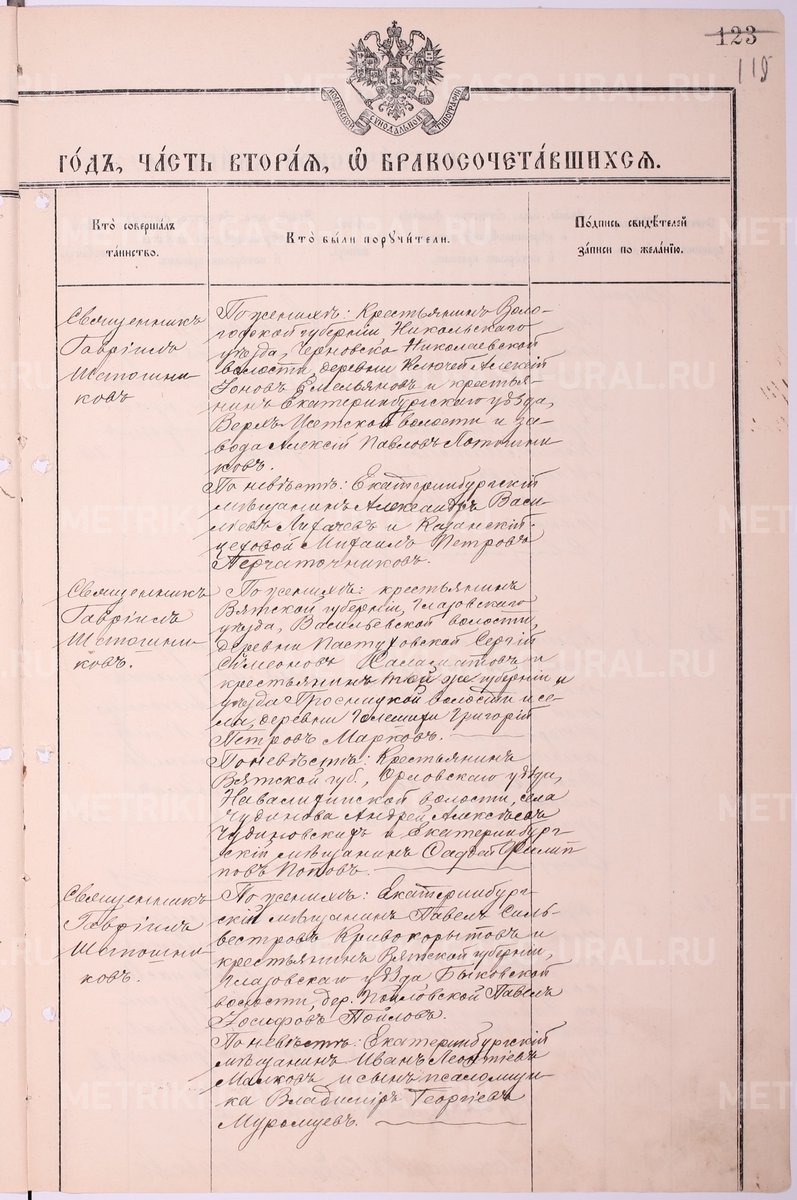 123
119
МОСКОВСКОЙ СѴНОДАЛЬНОЙ ТИПОГРАФІИ
ГО́ДЪ, ЧА́СТЬ ВТОРА́Я, Ѡ БРАКОСОЧЕТА́ВШИХСЯ.
Кто̀ совершалъ
та́инство.
Кто̀ бы́ли пору́чители.
По́дпись свидѣ́телей
за́писи по жела́нію.
Священникъ
Гавріилъ
Шапошни-
ковъ
По женихѣ: Крестьянинъ Воло-
годской губерніи Никольскаго
уѣзда, Черновско-Николаевской
волости, деревни Ключей Алексій
Іоновъ Емельяновъ и крестья-
нинъ Екатеринбургскаго уѣзда,
Верхъ-Исетской волости и за-
вода Алексій Павловъ
По невѣстѣ: Екатеринбургскій
мѣщанинъ Александръ Васи-
льевъ Лихачевъ и Казанскій
цеховой Михаилъ Петровъ
Перчаточниковъ.
Священникъ
Гавріилъ
Шапошни-
ковъ.
По женихѣ: крестьянинъ
Вятской губерніи, Глазовскаго
уѣзда, Васильевской волости,
деревни Пастуховской Сергій
Симеоновъ Саламатовъ и
крестьянинъ той же губерніи и
уѣзда волости и се-
ла, деревни Григорій
Петровъ Марковъ.
По невѣстѣ: Крестьянинъ
Вятской губ., Орловскаго уѣзда,
волости, села
Чудинова Андрей Алексѣевъ
Чудиновскихъ и Екатеринбург-
скій мѣщанинъ Филип-
повъ Поповъ.
Священникъ
Гавріилъ
Шапошни-
ковъ.
По женихѣ: Екатеринбург-
скій мѣщанинъ Павелъ Силь-
вестровъ Кривокорытовъ и
крестьянинъ Вятской губерніи,
Глазовскаго уѣзда Быковской
волости, дер. Пойловской Павелъ
Іосифовъ Пойловъ.
По невѣстѣ: Екатеринбургскій
мѣщанинъ Иванъ Леонтіевъ
Малковъ и сынъ псаломщи-
ка Владиміръ Георгіевъ
Муромцевъ.
METRIKI.GASO-URAL.RU